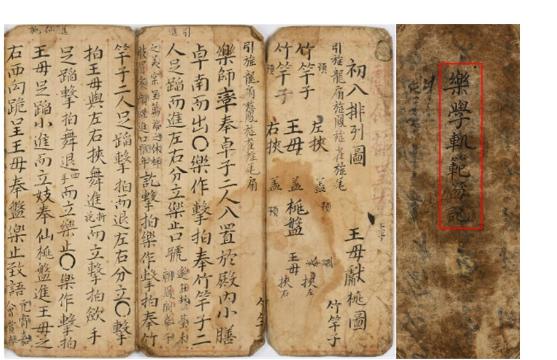 樂學軌範笏記
王母獻桃圖
竹竿子
初八排列圖
竹竿子 左挾 盖
竹竿子 王母 盖 桃盤 王母
右挾 盖
樂師率奉卓子二人入置於殿內小膳
卓南而出○樂作擊拍奉竹竿子二
人足蹈而進左右分立樂止口號
訖擊拍樂作擊拍奉竹
竿子二人足蹈擊拍而退左右分立○擊
拍王母與左右挾舞進而立擊拍斂手
足蹈擊拍舞退而立樂止○樂作擊拍
王母足蹈小進而立妓奉仙桃盤進王母之
右西向跪呈王母奉盤樂止致語